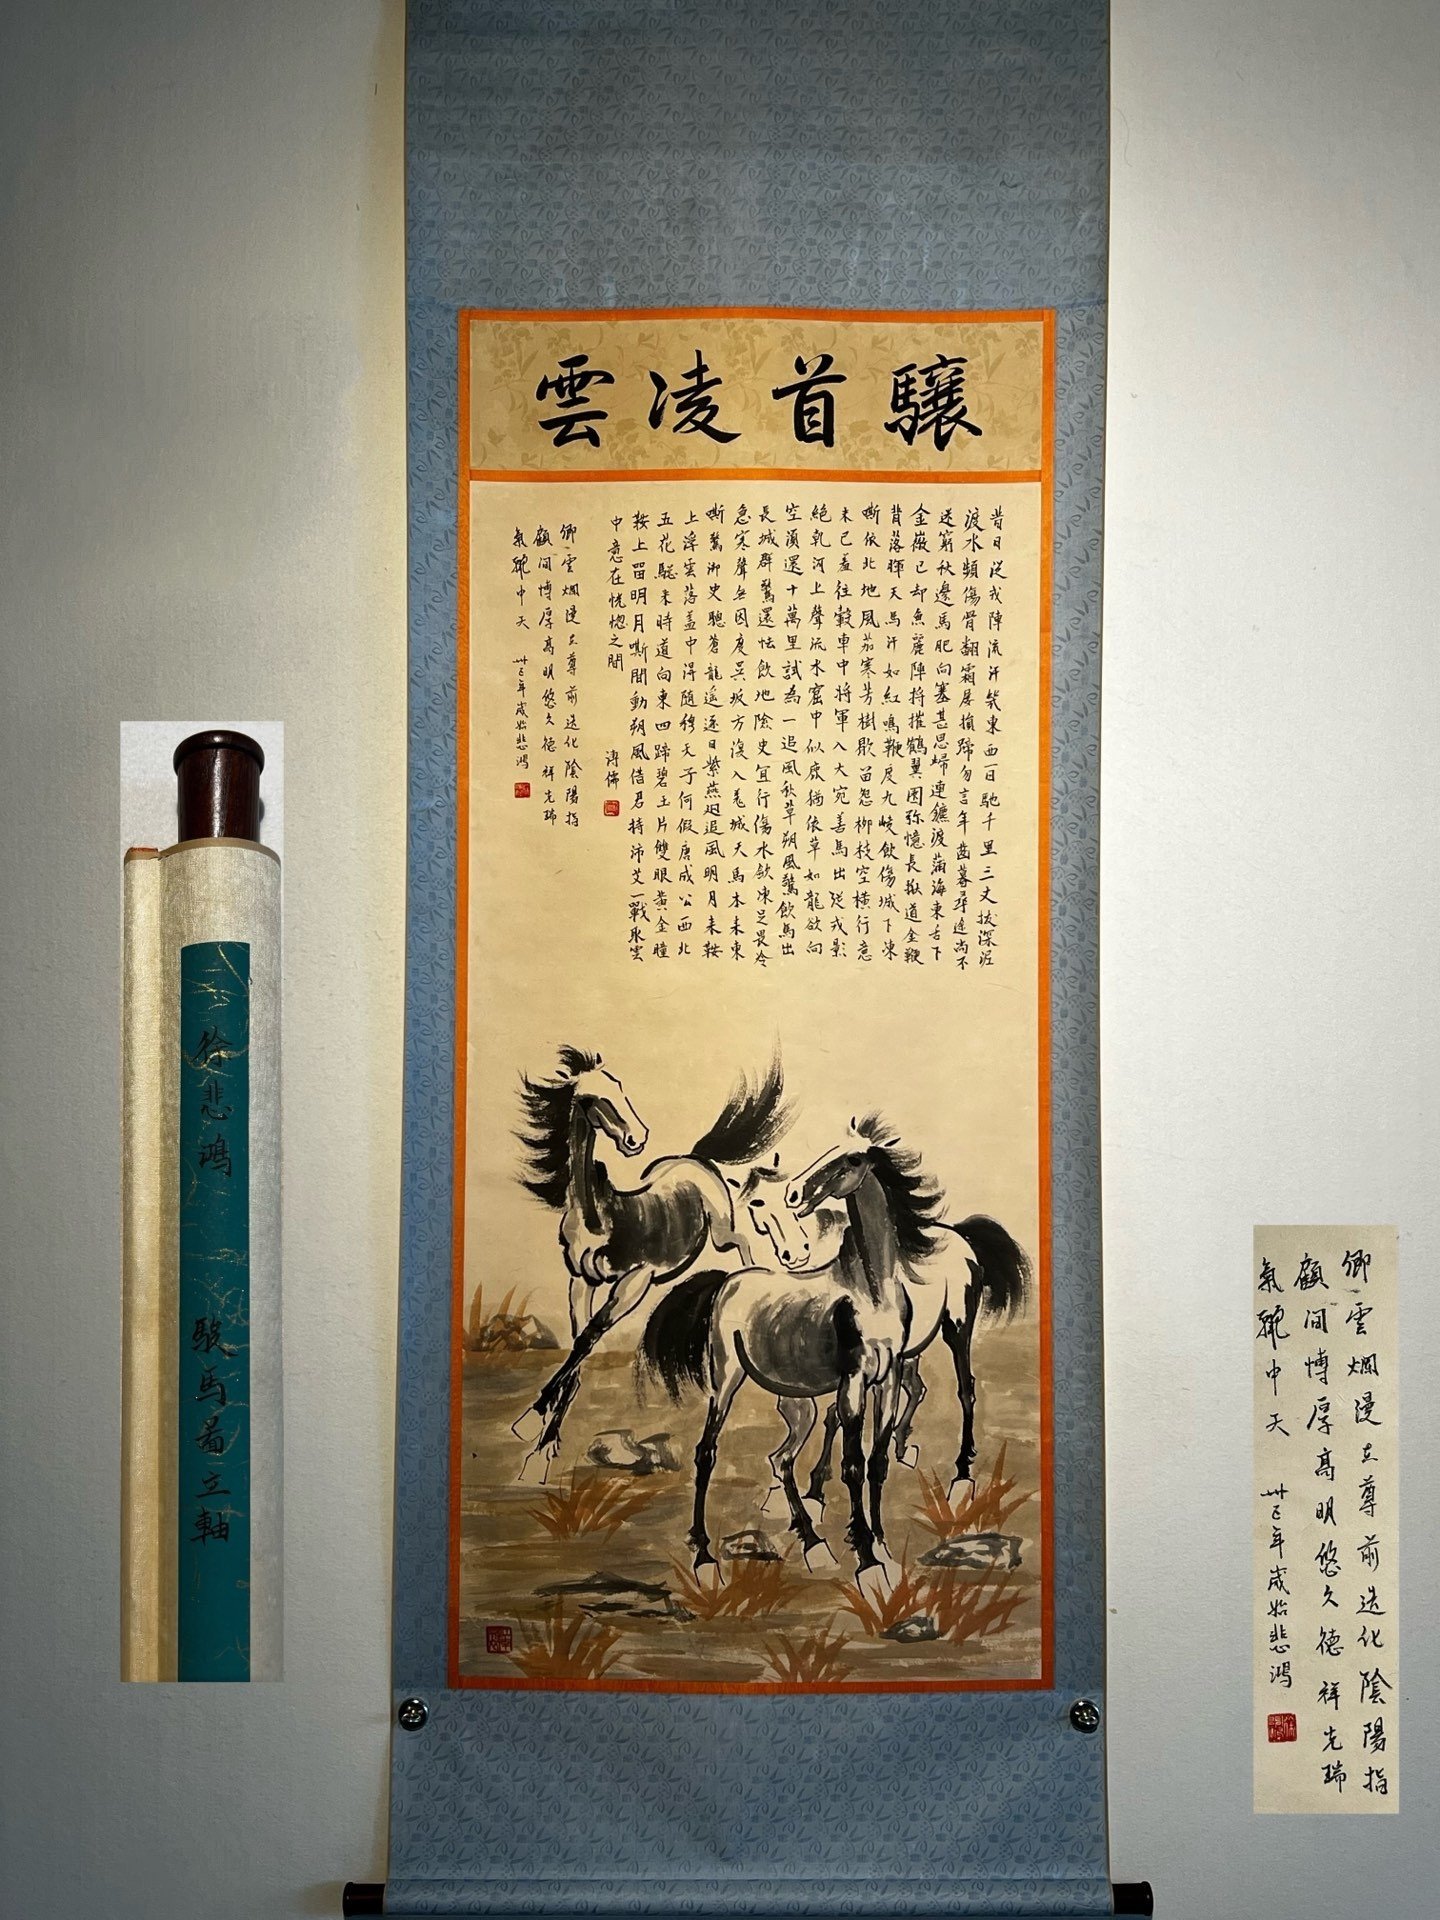 驤首凌雲
昔日從戎陣流汗幾東西一日馳千里三丈拔深泥
渡水頻傷骨翻霜屡損蹄勿言年齒暮尋途尚不
迷窮秋邊馬肥向塞甚思歸連鑣渡蒲海束舌下
金微已却魚麗陣將摧鶴翼圍弥憶長楸道金鞭
背落暉天馬汗如紅鳴鞭度九嵕飲傷城下凍
嘶依北地風笳寒芳樹歇笛怨柳枝空橫行意
未已羞往轂車中將軍入大宛善馬出從戎影
絕乾河上聲流水窟中似鹿猶依草如龍欲向
空湏還十萬里試為一追風秋草朔風驚飲馬出
長城群驚還怯飲地險史宜行傷水飲凍足畏冷
急寒聲無因度吳坂方復入羌城天馬本來東
嘶驚御史驄蒼龍遥逐日紫燕迥追風明月来鞍
上浮雲落蓋中得隨穆天子何假唐成公西北
五花驄来時道向東四蹄碧玉片雙眼黃金瞳
鞍上留明月嘶聞動朔風借君持沛艾一戰取雲
中意在恍惚之間 溥儒
卿雲爛漫在尊前造化陰陽指
顧間博厚高明悠久德祥光瑞
氣麗中天 卅年歲始悲鴻
徐悲鴻 駿馬圖立軸
卿雲爛漫在尊前造化陰陽指
顧間博厚高明悠久德祥光瑞
氣麗中天 卅年歲始悲鴻